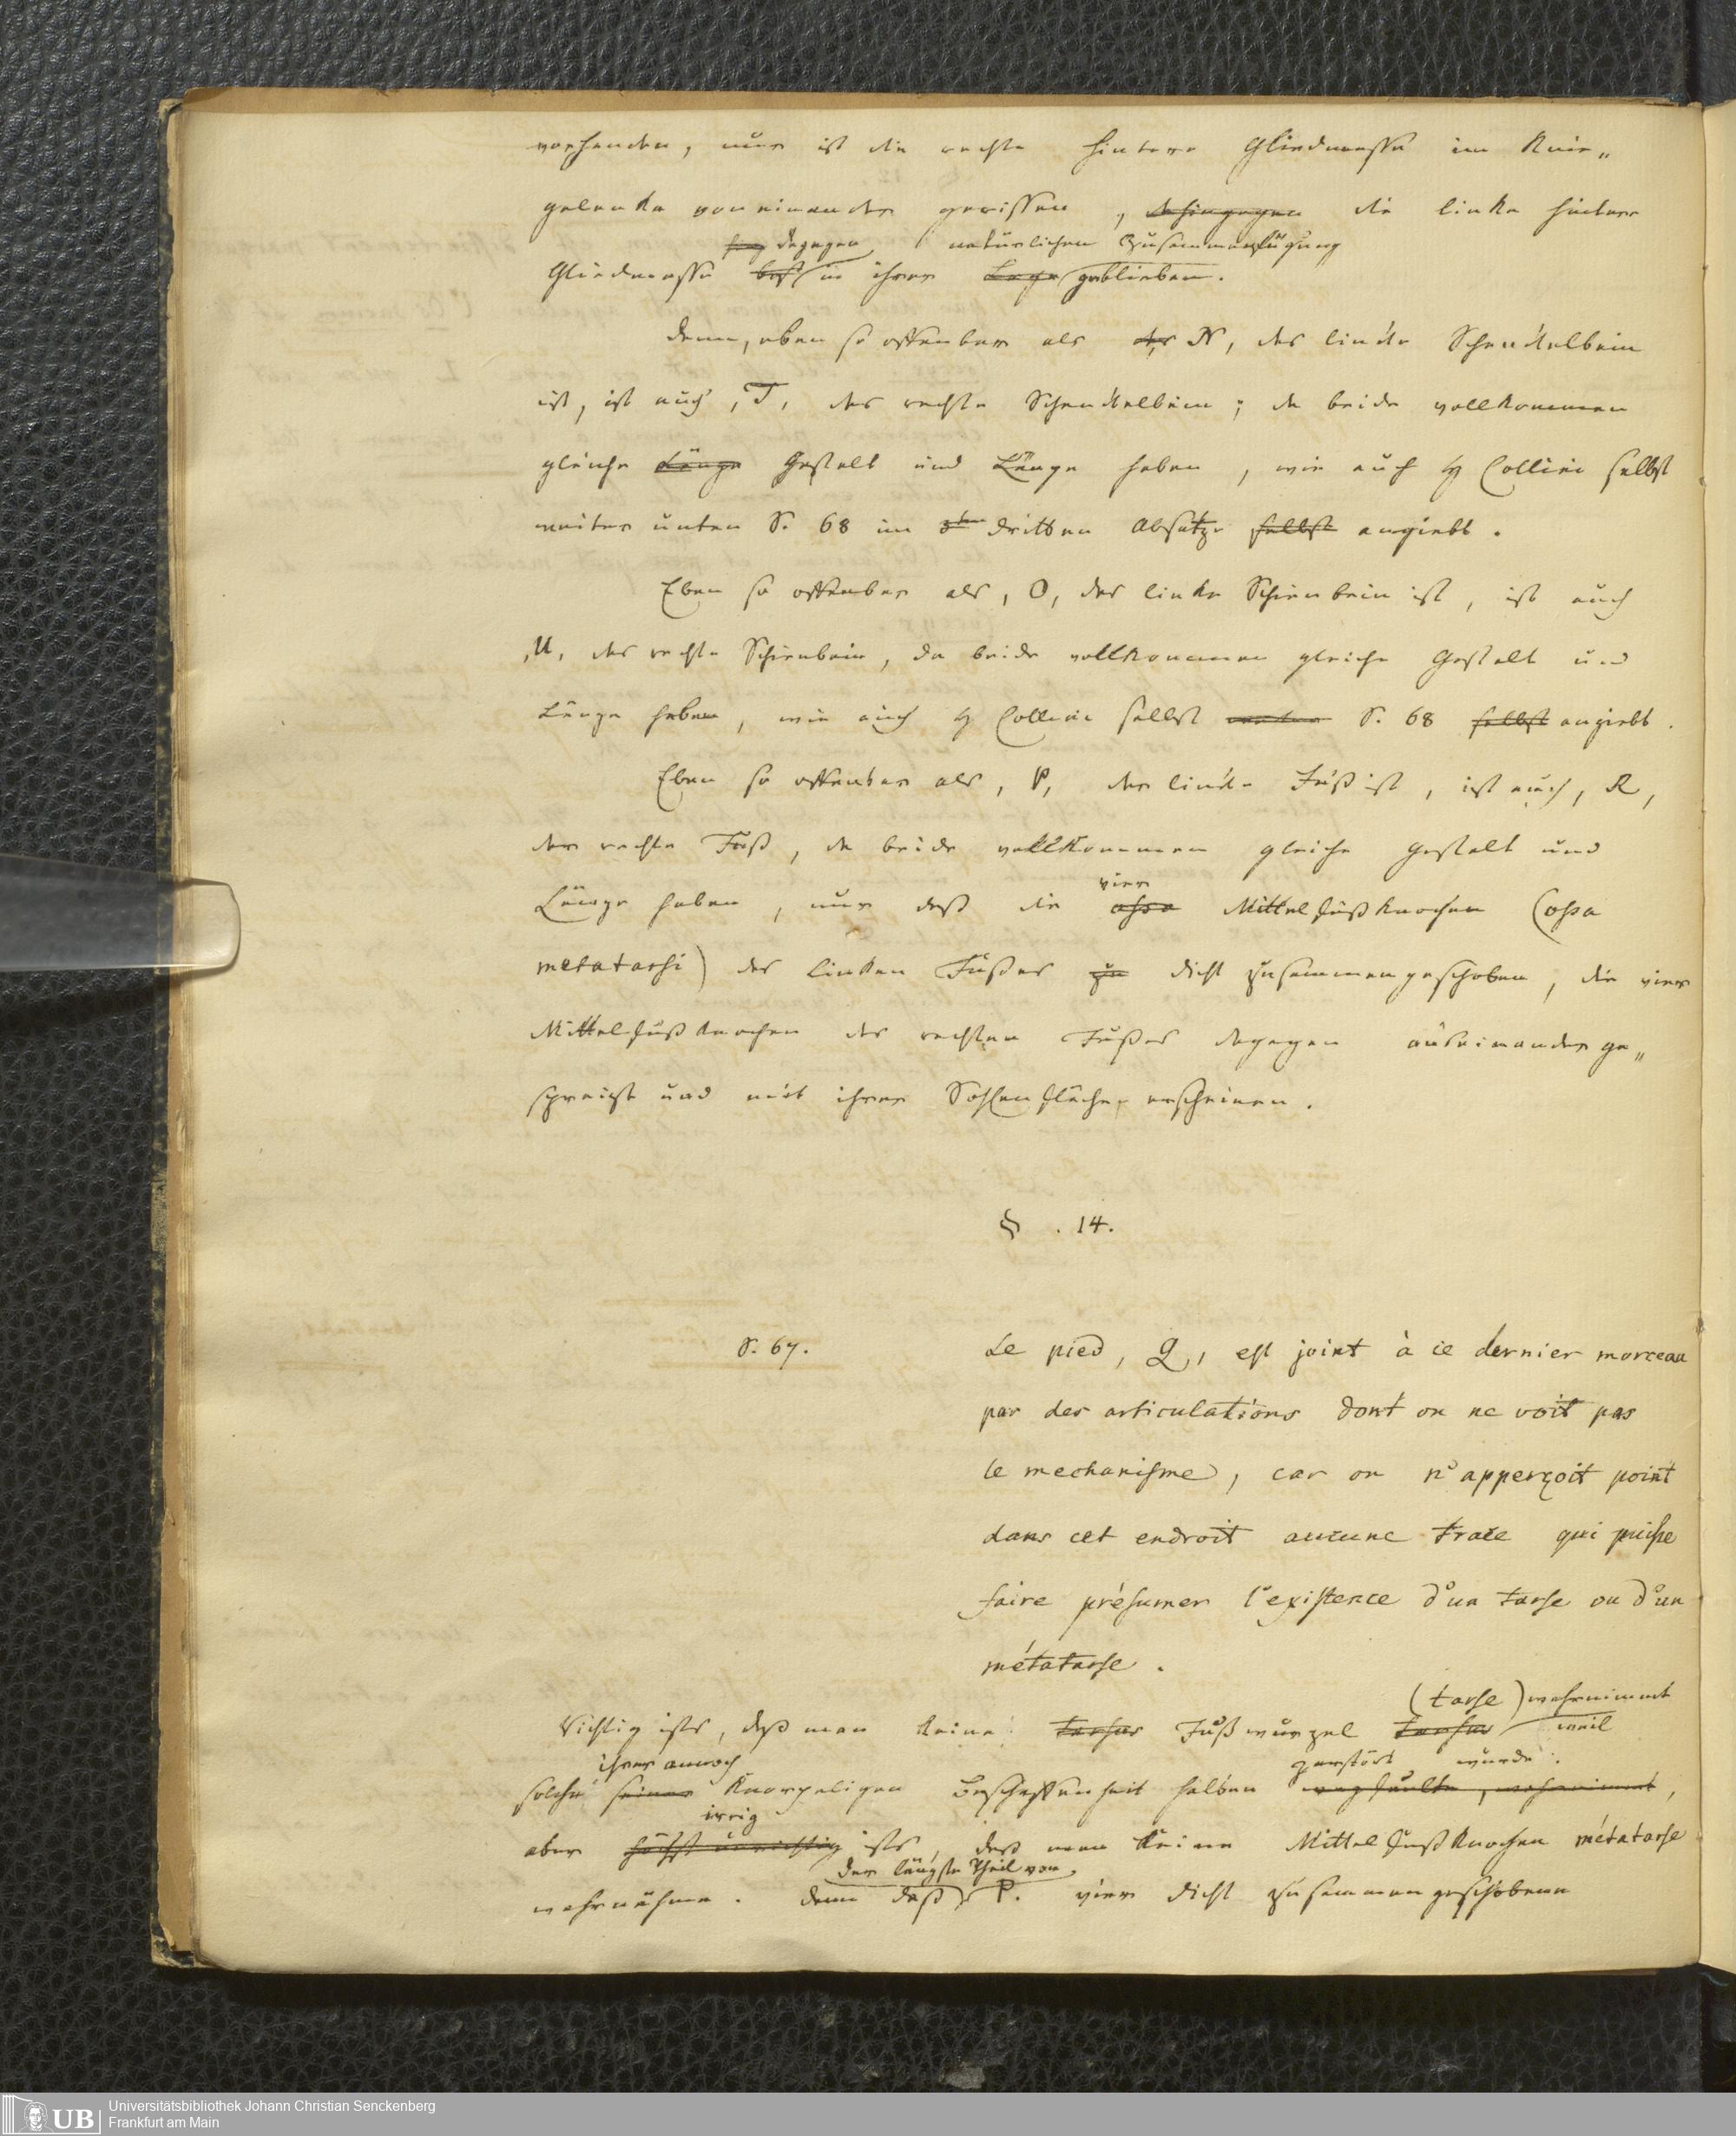 vorhanden, nur ist die rechte hintere Gliedmasse im Knie„
gelenke voneinander gerissen, dahingegen die linke hintere
dagegen natürlichen Zusammenfügung
Gliedmasse in ihrer Lage geblieben.
Denn, eben so offenbar als das N, das linke Schenkelbein
ist, ist auch, T, das rechte Schenkelbein; da beide vollkommen
gleiche Länge Gestalt und Länge haben, wie auch H Collini selbst
weiter unten S. 68 im 3ten dritten Absatze selbst angiebt.
Eben so offenbar als, O, das linke Schienbein ist, ist auch
,U, das rechte Schienbein, da beide vollkommen gleiche Gestalt und
Länge haben, wie auch H Collini selbst weiter S. 68 selbst angiebt.
Eben so offenbar als, P, der linke Fuß ist, ist auch, R,
der rechte Fuß, da beide vollkommen gleiche Gestalt und
vier
Länge haben, nur daß die ossa Mittelfußknochen (ossa
metatarsi) des linken Fußes zu dicht zusammengeschoben, die vier
Mittelfußknochen des rechten Fußes dagegen auseinander ge„
spreizt und mit ihrer Sohlenfläche erscheinen.
§. 14.
S. 67.
Le pied, Q, est joint à ce dernier morceau
par des articulations dont on ne voit pas
le mechanisme, car on n'apperçoit point
dans cet endroit aucune trace qui puisse
faire présumer l'existence d'un tarse ou d'un
métatarse.
(tarse) wahrnimmt
Richtig ists, daß man keine tarsus Fußwurzel tarsus weil
ihrer annoch zerstört wurde.
solche seiner knorpeligen Beschaffenheit halben wegfaulte, wahrnimmt,
irrig
aber höchst unrichtig ists, daß man keine Mittelfußknochen métatarse
der längste Theil von
wahrnähme. Denn daß P. vier dicht zusammengeschobene
Universitätsbibliothek Johann Christian Senckenberg
Frankfurt am Main
UB